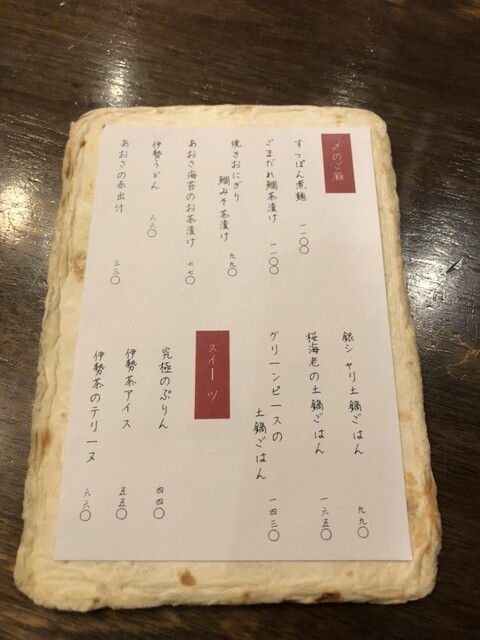 〆のご飯
すっぽん煮麺
一一〇〇
ごまだれ鯛茶漬け
一一〇〇
焼きおにぎり
鯛みそ茶漬け
九九〇
あおさ海苔のお茶漬け
七七〇
伊勢うどん
六六〇
あおさの赤出汁
三三〇
銀シャリ土鍋ごはん
九九〇
桜海老の土鍋ごはん
一六五〇
グリーンピースの
土鍋ごはん
一四三〇
スイーツ
究極のぷりん
四四〇
伊勢茶アイス
五五〇
伊勢茶のテリーヌ
六六〇